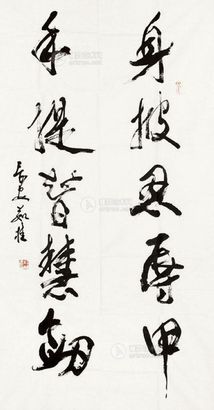 身披忍辱甲
手提智慧剑